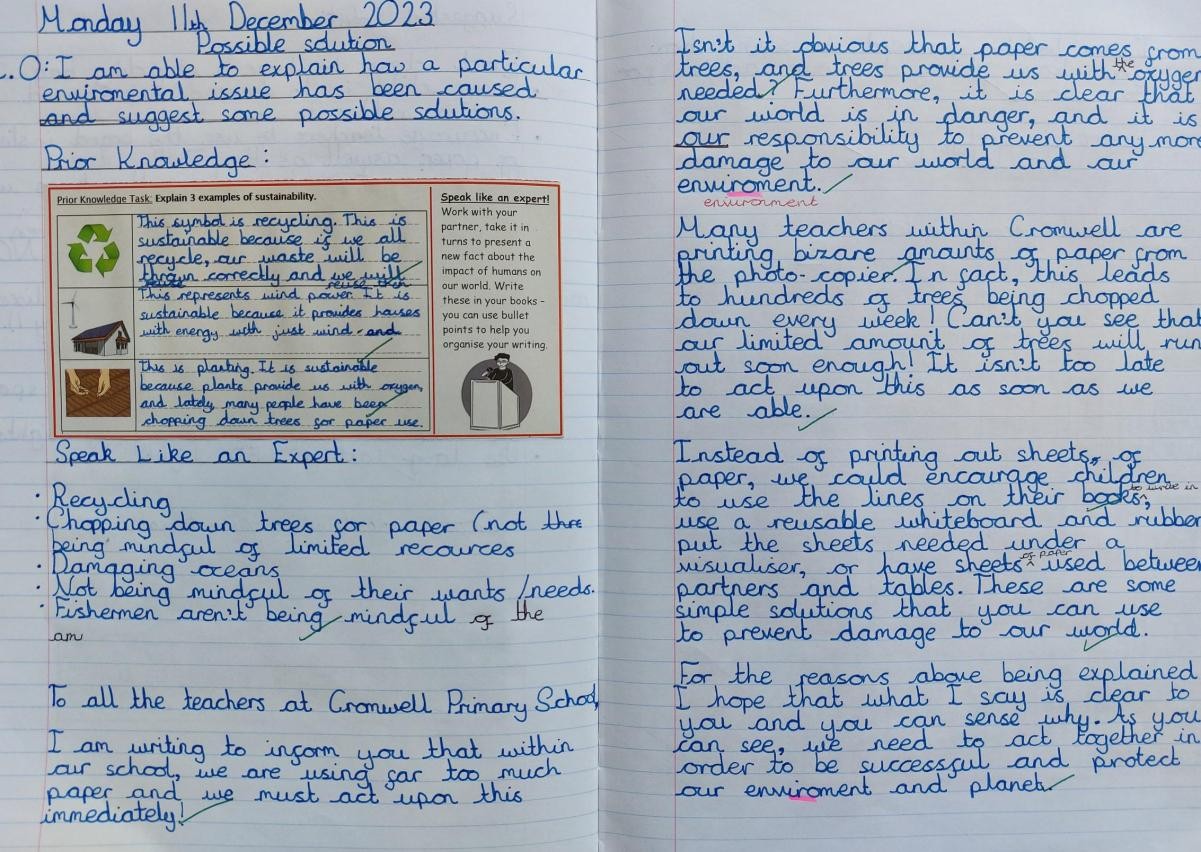 Monday 11th December 2023
Possible solution
L.O: I am able to explain how a particular
enviromental issue has been caused
and suggest some possible solutions.
Prior Knowledge:
Prior Knowledge Task: Explain 3 examples of sustainability.
This symbol is recycling. This is
sustainable because if we all
recycle, our waste will be
thrown correctly and we will
reuse them
This represents wind power. It is
sustainable because it provides houses
with energy with just wind and
This is planting. It is sustainable
because plants provide us with oxygen,
and lately, many people have been
chopping down trees for paper use.
Speak like an expert!
Work with your
partner, take it in
turns to present a
new fact about the
impact of humans on
our world. Write
these in your books -
you can use bullet
points to help you
organise your writing.
Speak Like an Expert:
· Recycling
· Chopping down trees for paper (not
being mindful of limited recources
· Damaging oceans
· Not being mindful of their wants/needs.
· Fishermen aren't being mindful of the
am
To all the teachers at Cromwell Primary School,
I am writing to inform you that within
our school, we are using far too much
paper and we must act upon this
immediately!
Isn't it obvious that paper comes from
trees, and trees provide us with the oxygen
needed? Furthermore, it is clear that
our world is in danger, and it is
our responsibility to prevent any more
damage to our world and our
enviroment.
environment
Many teachers within Cromwell are
printing bizare amounts of paper from
the photo-copier. In fact, this leads
to hundreds of trees being chopped
down every week! Can't you see that
our limited amount of trees will run
out soon enough! It isn't too late
to act upon this as soon as we
are able.
Instead of printing out sheets, of
paper, we could encourage children
to use the lines on their books, to write in
use a reusable whiteboard and rubber
put the sheets needed under a
visualiser, or have sheets of paper used between
partners and tables. These are some
simple solutions that you can use
to prevent damage to our world.
For the reasons above being explained
I hope that what I say is clear to
you and you can sense why. As you
can see, we need to act together in
order to be successful and protect
our enviroment and planet.